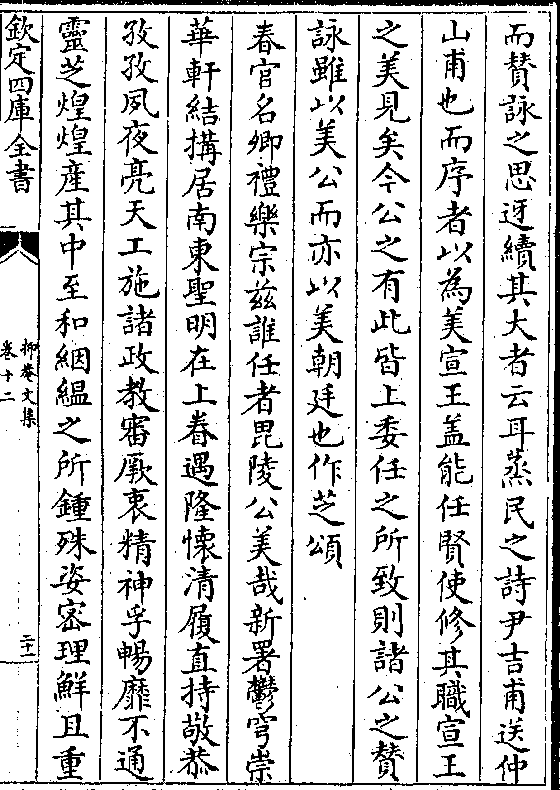 而賛詠之思迓續其大者云耳蒸民之詩尹吉甫送仲
山甫也而序者以為美宣王盖能任賢使修其職宣王
之美見矣今公之有此皆上委任之所致則諸公之賛
詠雖以美公而亦以美朝廷也作芝頌
春官名卿禮樂宗兹誰任者毘陵公美哉新署鬱穹崇
華軒結搆居南東聖明在上眷遇隆懐清履直持敬恭
孜孜夙夜亮天工施諸政教審厥衷精神孚暢靡不通
靈芝煌煌産其中至和絪緼之所鍾殊姿宻理鮮且重
欽定四庫全書
抑菴文集
卷十二
二十一